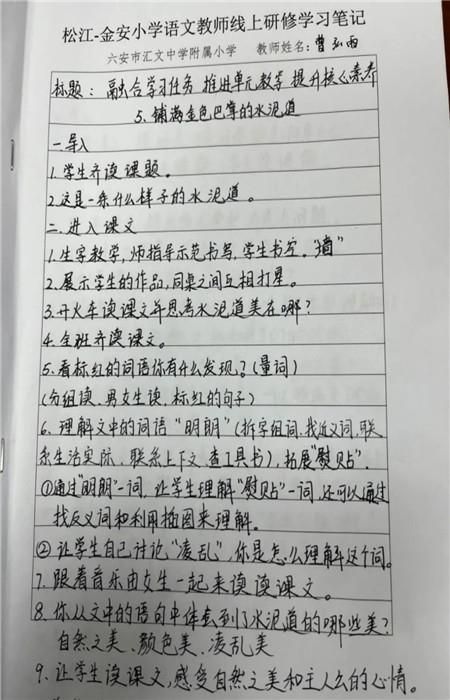 松江-金安小学语文教师线上研修学习笔记
六安市汇文中学附属小学 教师姓名：曹弘雨
标题：融合学习任务 推进单元教学 提升核心素养
5.铺满金色巴掌的水泥道
一.导入
1.学生齐读课题。
2.这是一条什么样子的水泥道。
二.进入课文
1.生字教学，师指导示范书写，学生书空。“墙”
2.展示学生的作品，同桌之间互相打星。
3.开火车读课文并思考水泥道美在哪？
4.全班齐读课文。
5.看标红的词语你有什么发现？（量词）
（分组读、男女生读、标红的句子）
6.理解文中的词语“明朗”（拆字组词、找近义词、联
系生活实际、联系上下文、查工具书），拓展“熨贴”.
①通过“明朗”一词，让学生理解“熨贴”一词，还可以通过
找反义词和利用插图来理解。
②让学生自己讨论“凌乱”，你是怎么理解这个词。
7.跟着音乐由女生一起来读读课文。
8.你从文中的语句中体会到了水泥道的哪些美？
自然之美、颜色美、凌乱美
9.让学生读课文，感受自然之美和主人公的心情。